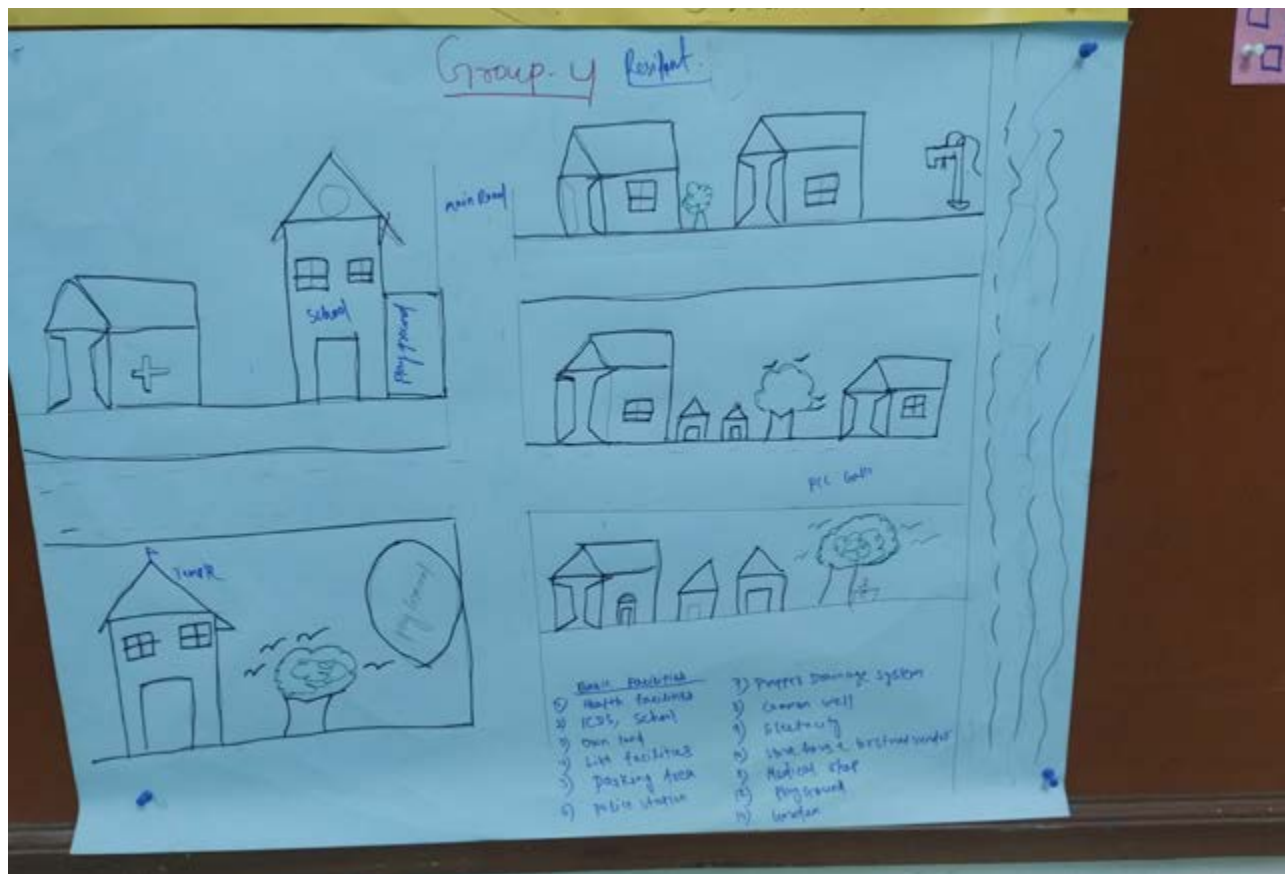 Group-4
main Road
School
Play ground
Temple
Playground
PCC
Basic Facilities
1) Health facilities
2) ICDS, School
3) Own land
4) facilities
5) Parking Area
6) Police station
7) Propper Drainage system
8) Common well
9) Electricity
10) Store house
Medical shop
12) Playground